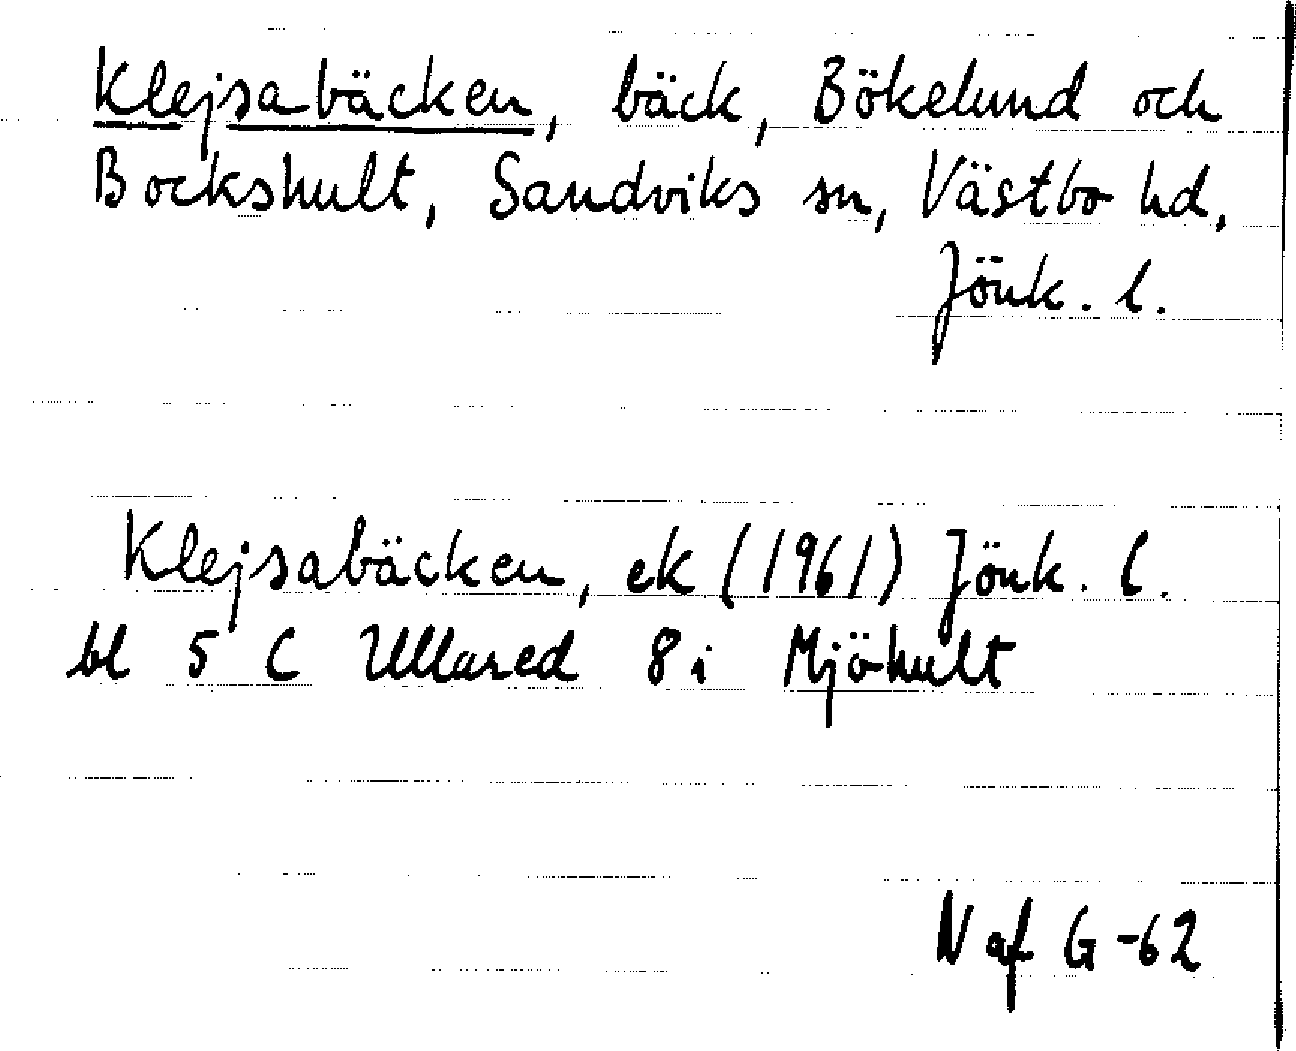 Klejsabäcken, bäck, Bökelund och
Bockshult, Sandviks sn, Västbo hd,
Jönk. l.
Klejsabäcken, ek (1961) Jönk. l.
bl 5 C Ullared 8 i Mjöhult
N af G -62